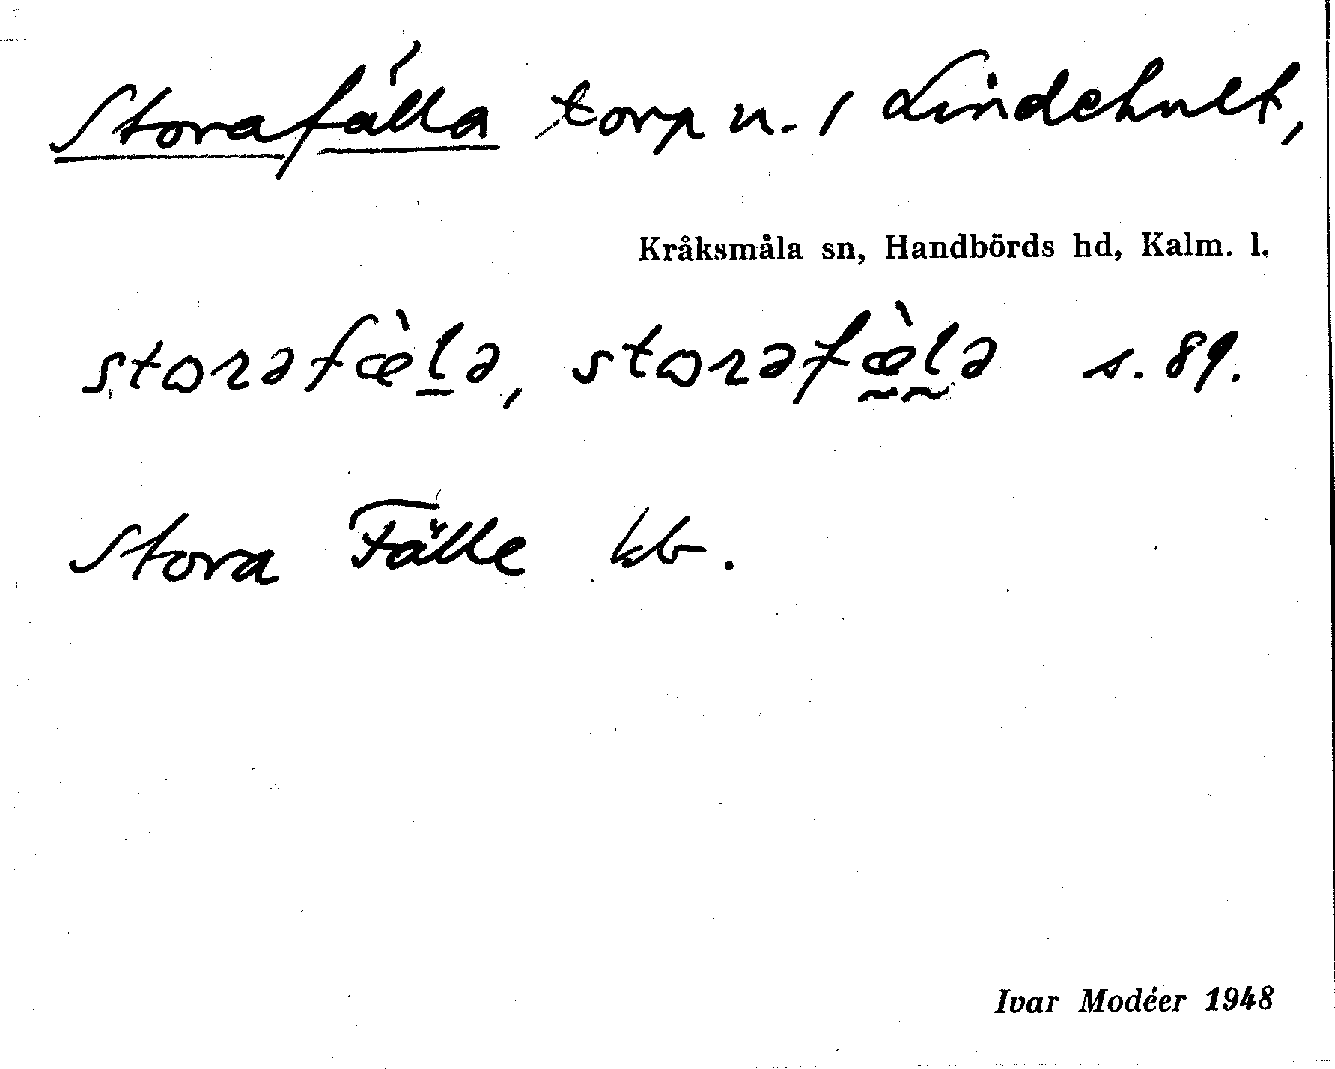 Storafälla torp u. / Lindehult,
Kråksmåla sn, Handbörds hd, Kalm. l.
storəfæ̀l̠ə, storəfæ̰̀l̰ə s. 89.
Stora Fälle kb.
Ivar Modéer 1948